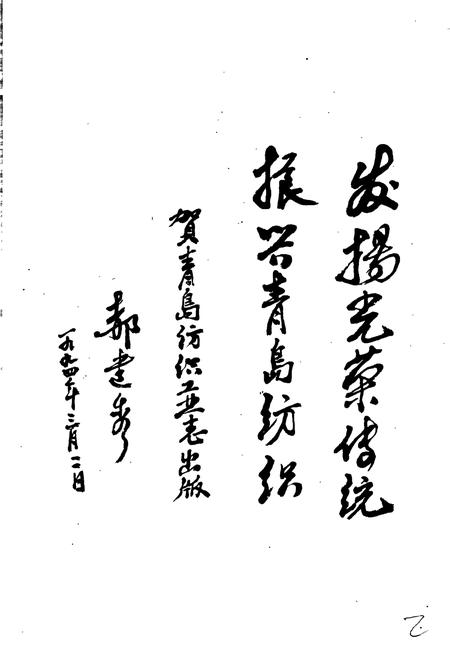 发揚光荣传统
振兴青島纺织
賀青島纺织工业志出版
郝建秀
一九九四年三月二日